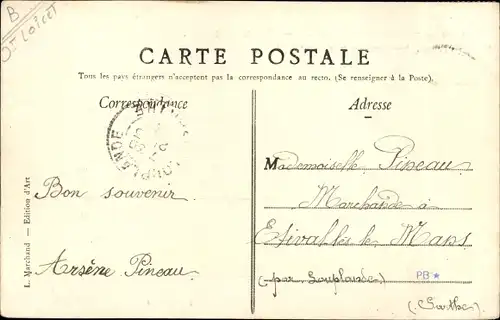 B
CARTE POSTALE
Tous les pays étrangers n'acceptent pas la correspondance au recto. (Se renseigner à la Poste).
Correspondance
Adresse
LOUPLANDE
Bon souvenir
Arsène Pineau
L. Marchand — Edition d'Art
Mademoiselle Pineau
Marchande à
Etival lès le Mans
(par Louplande)
PB
(Sarthe)